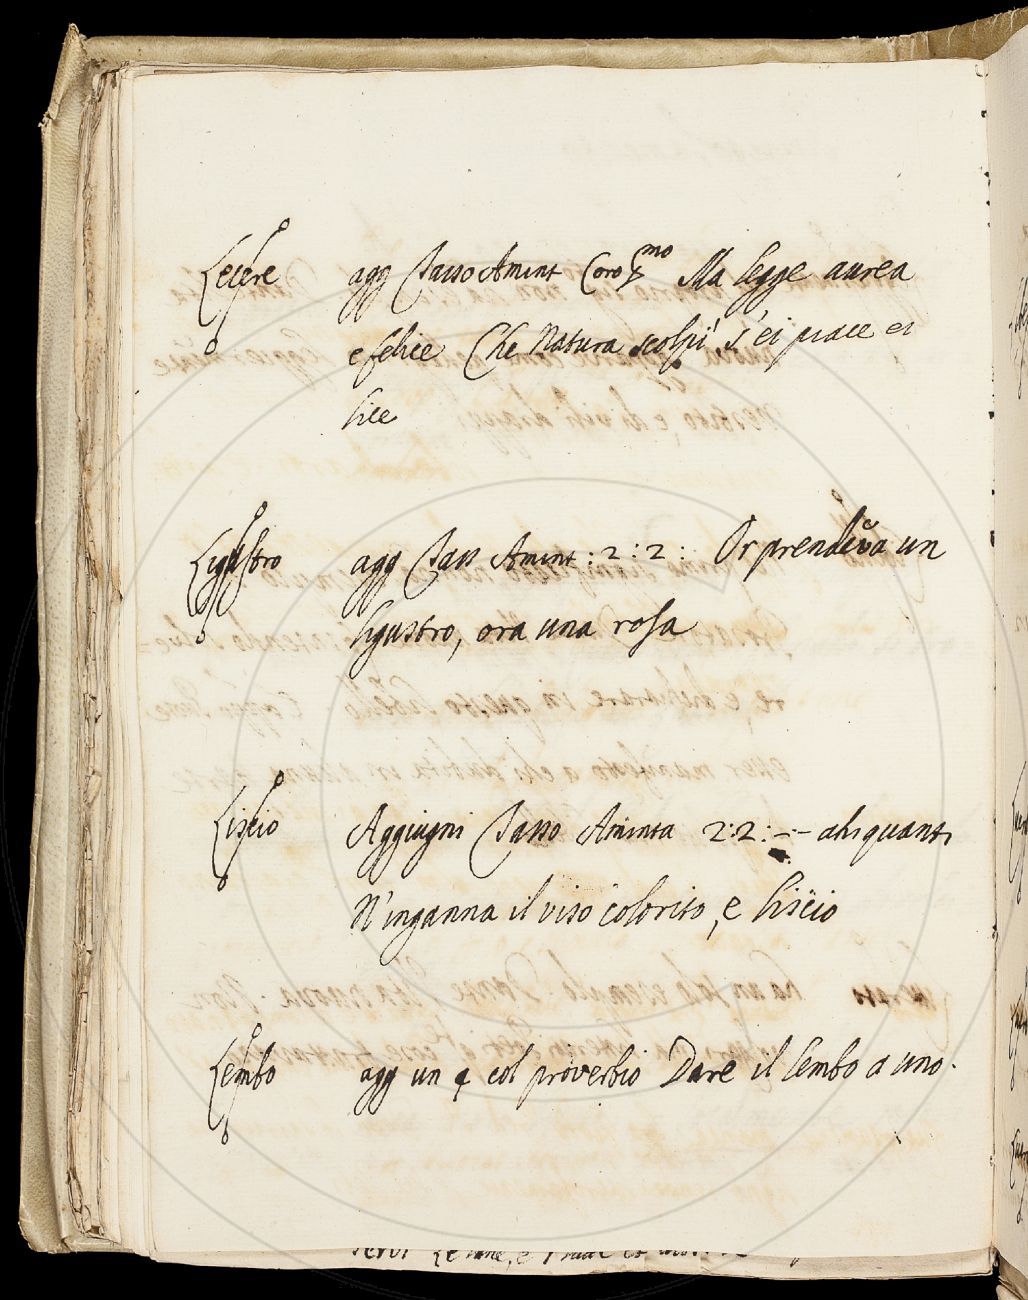 Lecere agg Tasso Amint Coro Pmo Ma legge aurea
e felice Che Natura scolpì s'ei piace ei
lice
Ligustro agg Tass Amint: 2: 2: Or prendeva un
ligustro, ora una rosa
Liscio Aggiugni Tasso Aminta 2:2: -- aliquanti
N'inganna il viso colorito, e liscio
Lembo agg un § col proverbio Dare il lembo a uno.